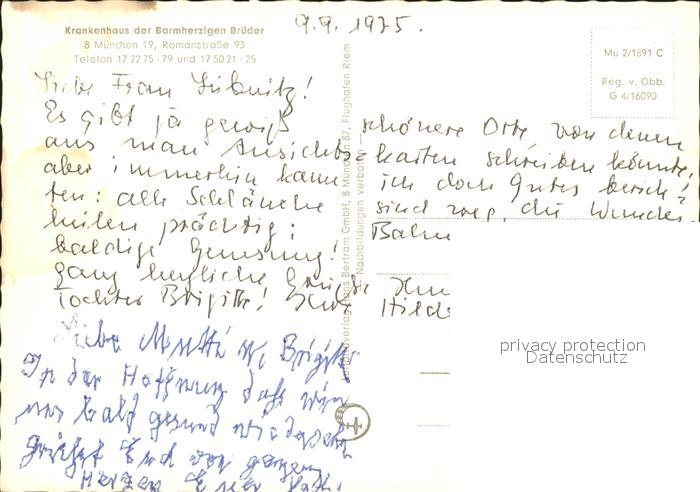 9.9.1975.
Krankenhaus der Barmherzigen Brüder
8 München 19, Romanstraße 93
Telefon 17 22 75 - 79 und 17 50 21 - 25
Mü 2/1891 C
Reg. v. Obb.
G 4/16090
Liebe Frau
Es gibt ja gewiß schönere Orte von denen
aus man Ansichts= karten schreiben könnte,
aber immerhin kann ich doch Gutes berich=
ten: alle Schläuche sind weg, die Wunden
heilen prächtig: Bal
baldige Genesung!
Ganz herzliche Grüße
Tochter Brigitte! Hilde
Bertram GmbH, 8 München 87, Flughafen Riem
Nachbildungen verboten
Liebe Mutti
In der Hoffnung daß wir
uns bald gesund wiedersehn
grüßt Euch von ganzem
Herzen Euer
privacy protection
Datenschutz